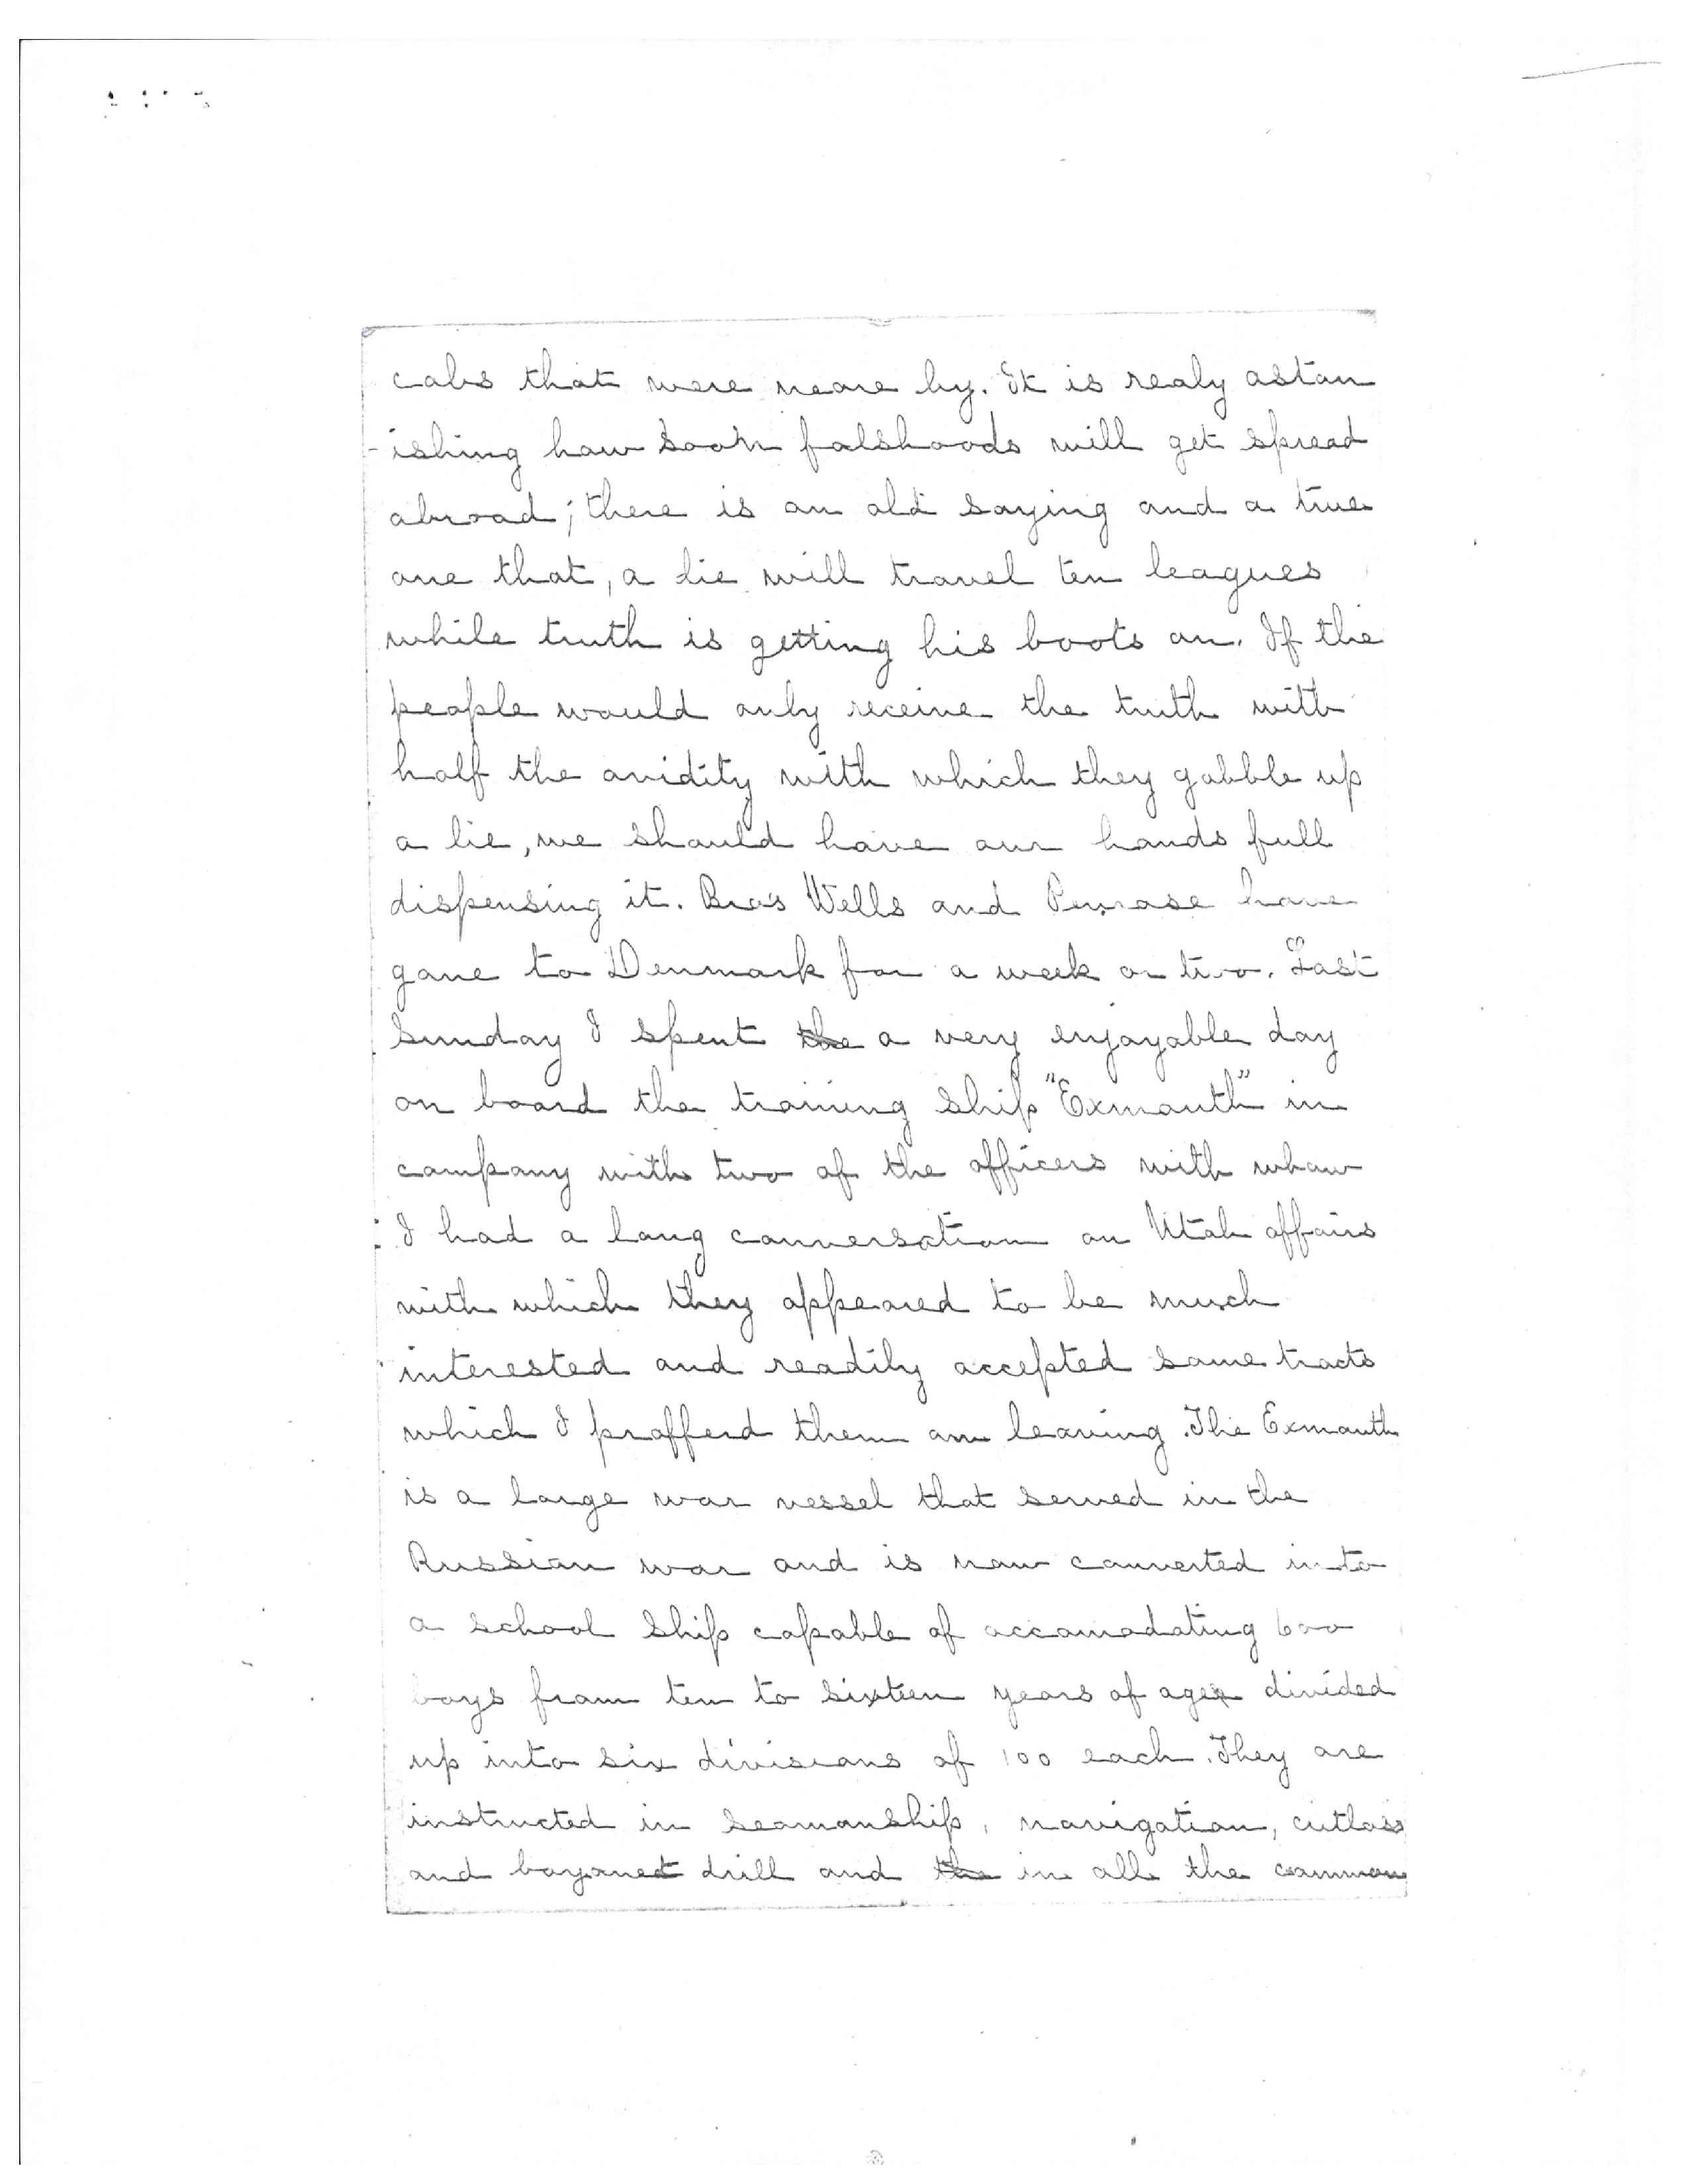 cabs that were neare by. It is realy aston
-ishing how soon falshoods will get spread
abroad; there is an old saying and a true
one that, a lie will travel ten leagues
while truth is getting his boots on. If the
people would only receive the truth with
half the avidity with which they gobble up
a lie, we should have our hands full
dispensing it. Bros Wells and Penrose have
gone to Denmark for a week or two. Last
Sunday I spent the a very enjoyable day
on board the training ship "Exmouth" in
company with two of the officers with whom
I had a long conversation on Utah affairs
with which they appeared to be much
interested and readily accepted some tracts
which I profferd them on leaving. The Exmouth
is a large war vessel that served in the
Russian war and is now converted into
a school ship capable of accomodating 600
boys from ten to sixteen years of age divided
up into six divisions of 100 each. They are
instructed in seamanship, navigation, cutlass
and bayonet drill and the in all the common